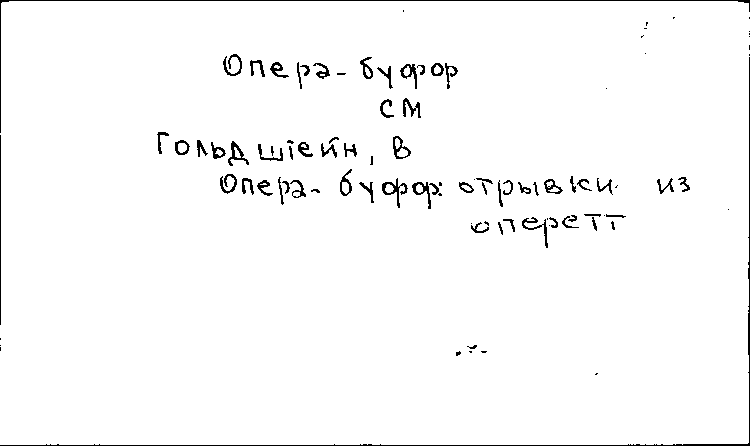 Опера-буфор
см
Гольдштейн, в
Опера-буфор: отрывки из
оперетт